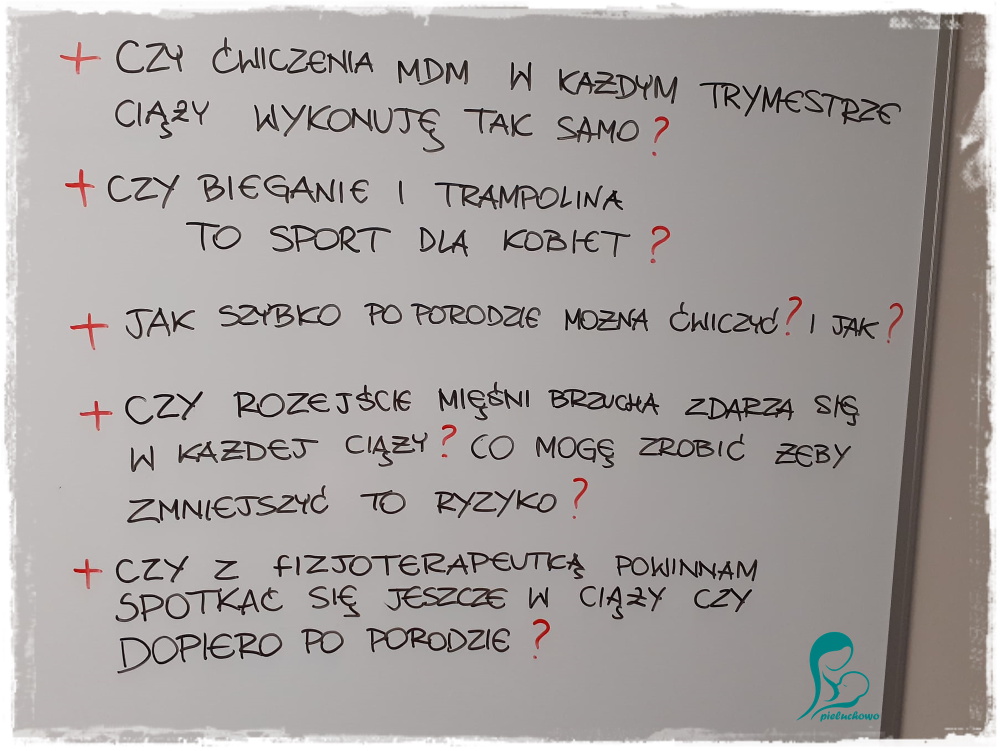 + CZY ĆWICZENIA MDM W KAŻDYM TRYMESTRZE
CIĄŻY WYKONUJĘ TAK SAMO?
+ CZY BIEGANIE I TRAMPOLINA
TO SPORT DLA KOBIET?
+ JAK SZYBKO PO PORODZIE MOŻNA ĆWICZYĆ? I JAK?
+ CZY ROZEJŚCIE MIĘŚNI BRZUCHA ZDARZA SIĘ
W KAŻDEJ CIĄŻY? CO MOGĘ ZROBIĆ ŻEBY
ZMNIEJSZYĆ TO RYZYKO?
+ CZY Z FIZJOTERAPEUTKĄ POWINNAM
SPOTKAĆ SIĘ JESZCZE W CIĄŻY CZY
DOPIERO PO PORODZIE?
pieluchowo